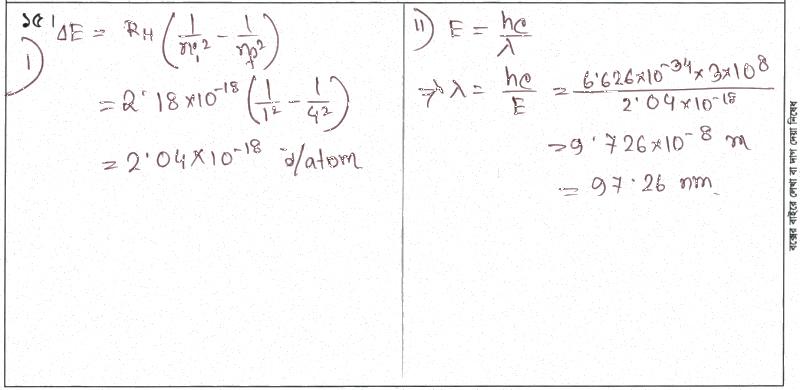 ১৫।
i) ΔE = R_H (1/n_i² - 1/n_f²)
= 2.18×10⁻¹⁸ (1/1² - 1/4²)
= 2.04×10⁻¹⁸ J/atom
ii) E = hc/λ
⇒ λ = hc/E = 6.626×10⁻³⁴×3×10⁸/2.04×10⁻¹⁸
= 9.726×10⁻⁸ m
= 97.26 nm
বক্সের বাইরে লেখা বা দাগ দেয়া নিষেধ